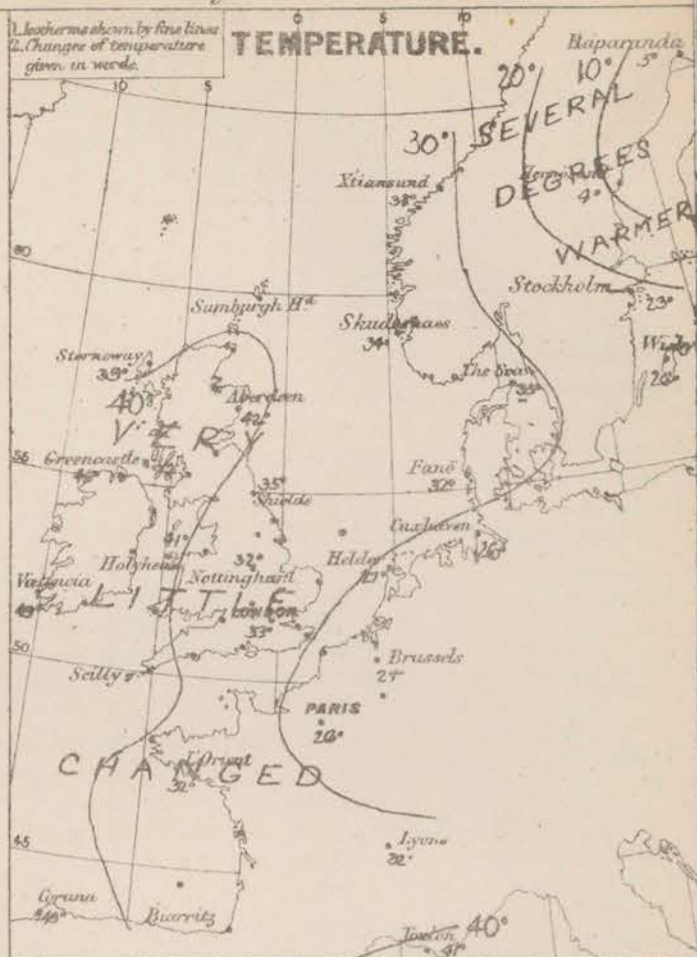 1. Isotherms shown by fine lines
2. Changes of temperature
given in words.
TEMPERATURE.
10
5
0
5
10
Haparanda
5°
20°
10°
SEVERAL
30°
DEGREES
4°
Xtiansund
38°
WARMER
60
Stockholm
23°
Sumburgh Hd
Skudesnaes
34°
Stornoway
39°
40°
Aberdeen
42°
The Scaw
VERY
55
Greencastle
Fanö
32°
35°
Shields
Cuxhaven
26°
41°
Holyhead
32°
Nottingham
Helder
Valencia
LITTLE
LONDON
33°
50
Scilly
Brussels
PARIS
CHANGED
L'Orient
32°
45
Lyons
Coruna
Biarritz
Toulon
40°
41°